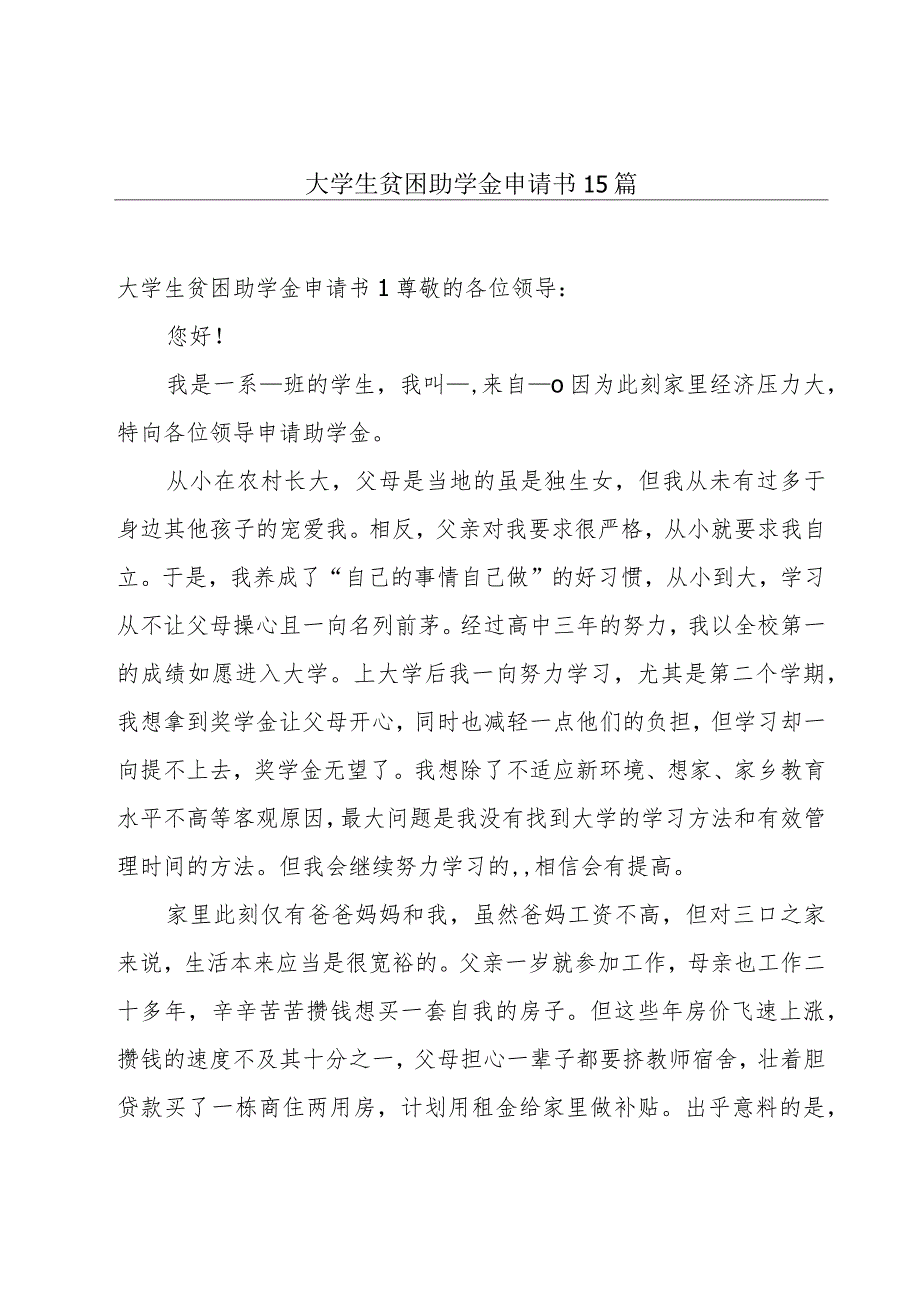 大学生贫困助学金申请书15篇
大学生贫困助学金申请书1尊敬的各位领导：
您好！
我是一系—班的学生，我叫—,来自—o因为此刻家里经济压力大，
特向各位领导申请助学金。
从小在农村长大，父母是当地的虽是独生女，但我从未有过多于
身边其他孩子的宠爱我。相反，父亲对我要求很严格，从小就要求我自
立。于是，我养成了“自己的事情自己做”的好习惯，从小到大，学习
从不让父母操心且一向名列前茅。经过高中三年的努力，我以全校第一
的成绩如愿进入大学。上大学后我一向努力学习，尤其是第二个学期，
我想拿到奖学金让父母开心，同时也减轻一点他们的负担，但学习却一
向提不上去，奖学金无望了。我想除了不适应新环境、想家、家乡教育
水平不高等客观原因，最大问题是我没有找到大学的学习方法和有效管
理时间的方法。但我会继续努力学习的,,相信会有提高。
家里此刻仅有爸爸妈妈和我，虽然爸妈工资不高，但对三口之家
来说，生活本来应当是很宽裕的。父亲一岁就参加工作，母亲也工作二
十多年，辛辛苦苦攒钱想买一套自我的房子。但这些年房价飞速上涨，
攒钱的速度不及其十分之一，父母担心一辈子都要挤教师宿舍，壮着胆
贷款买了一栋商住两用房，计划用租金给家里做补贴。出乎意料的是，